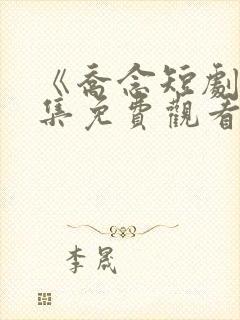 《喬念短劇
集免費觀看
李晟